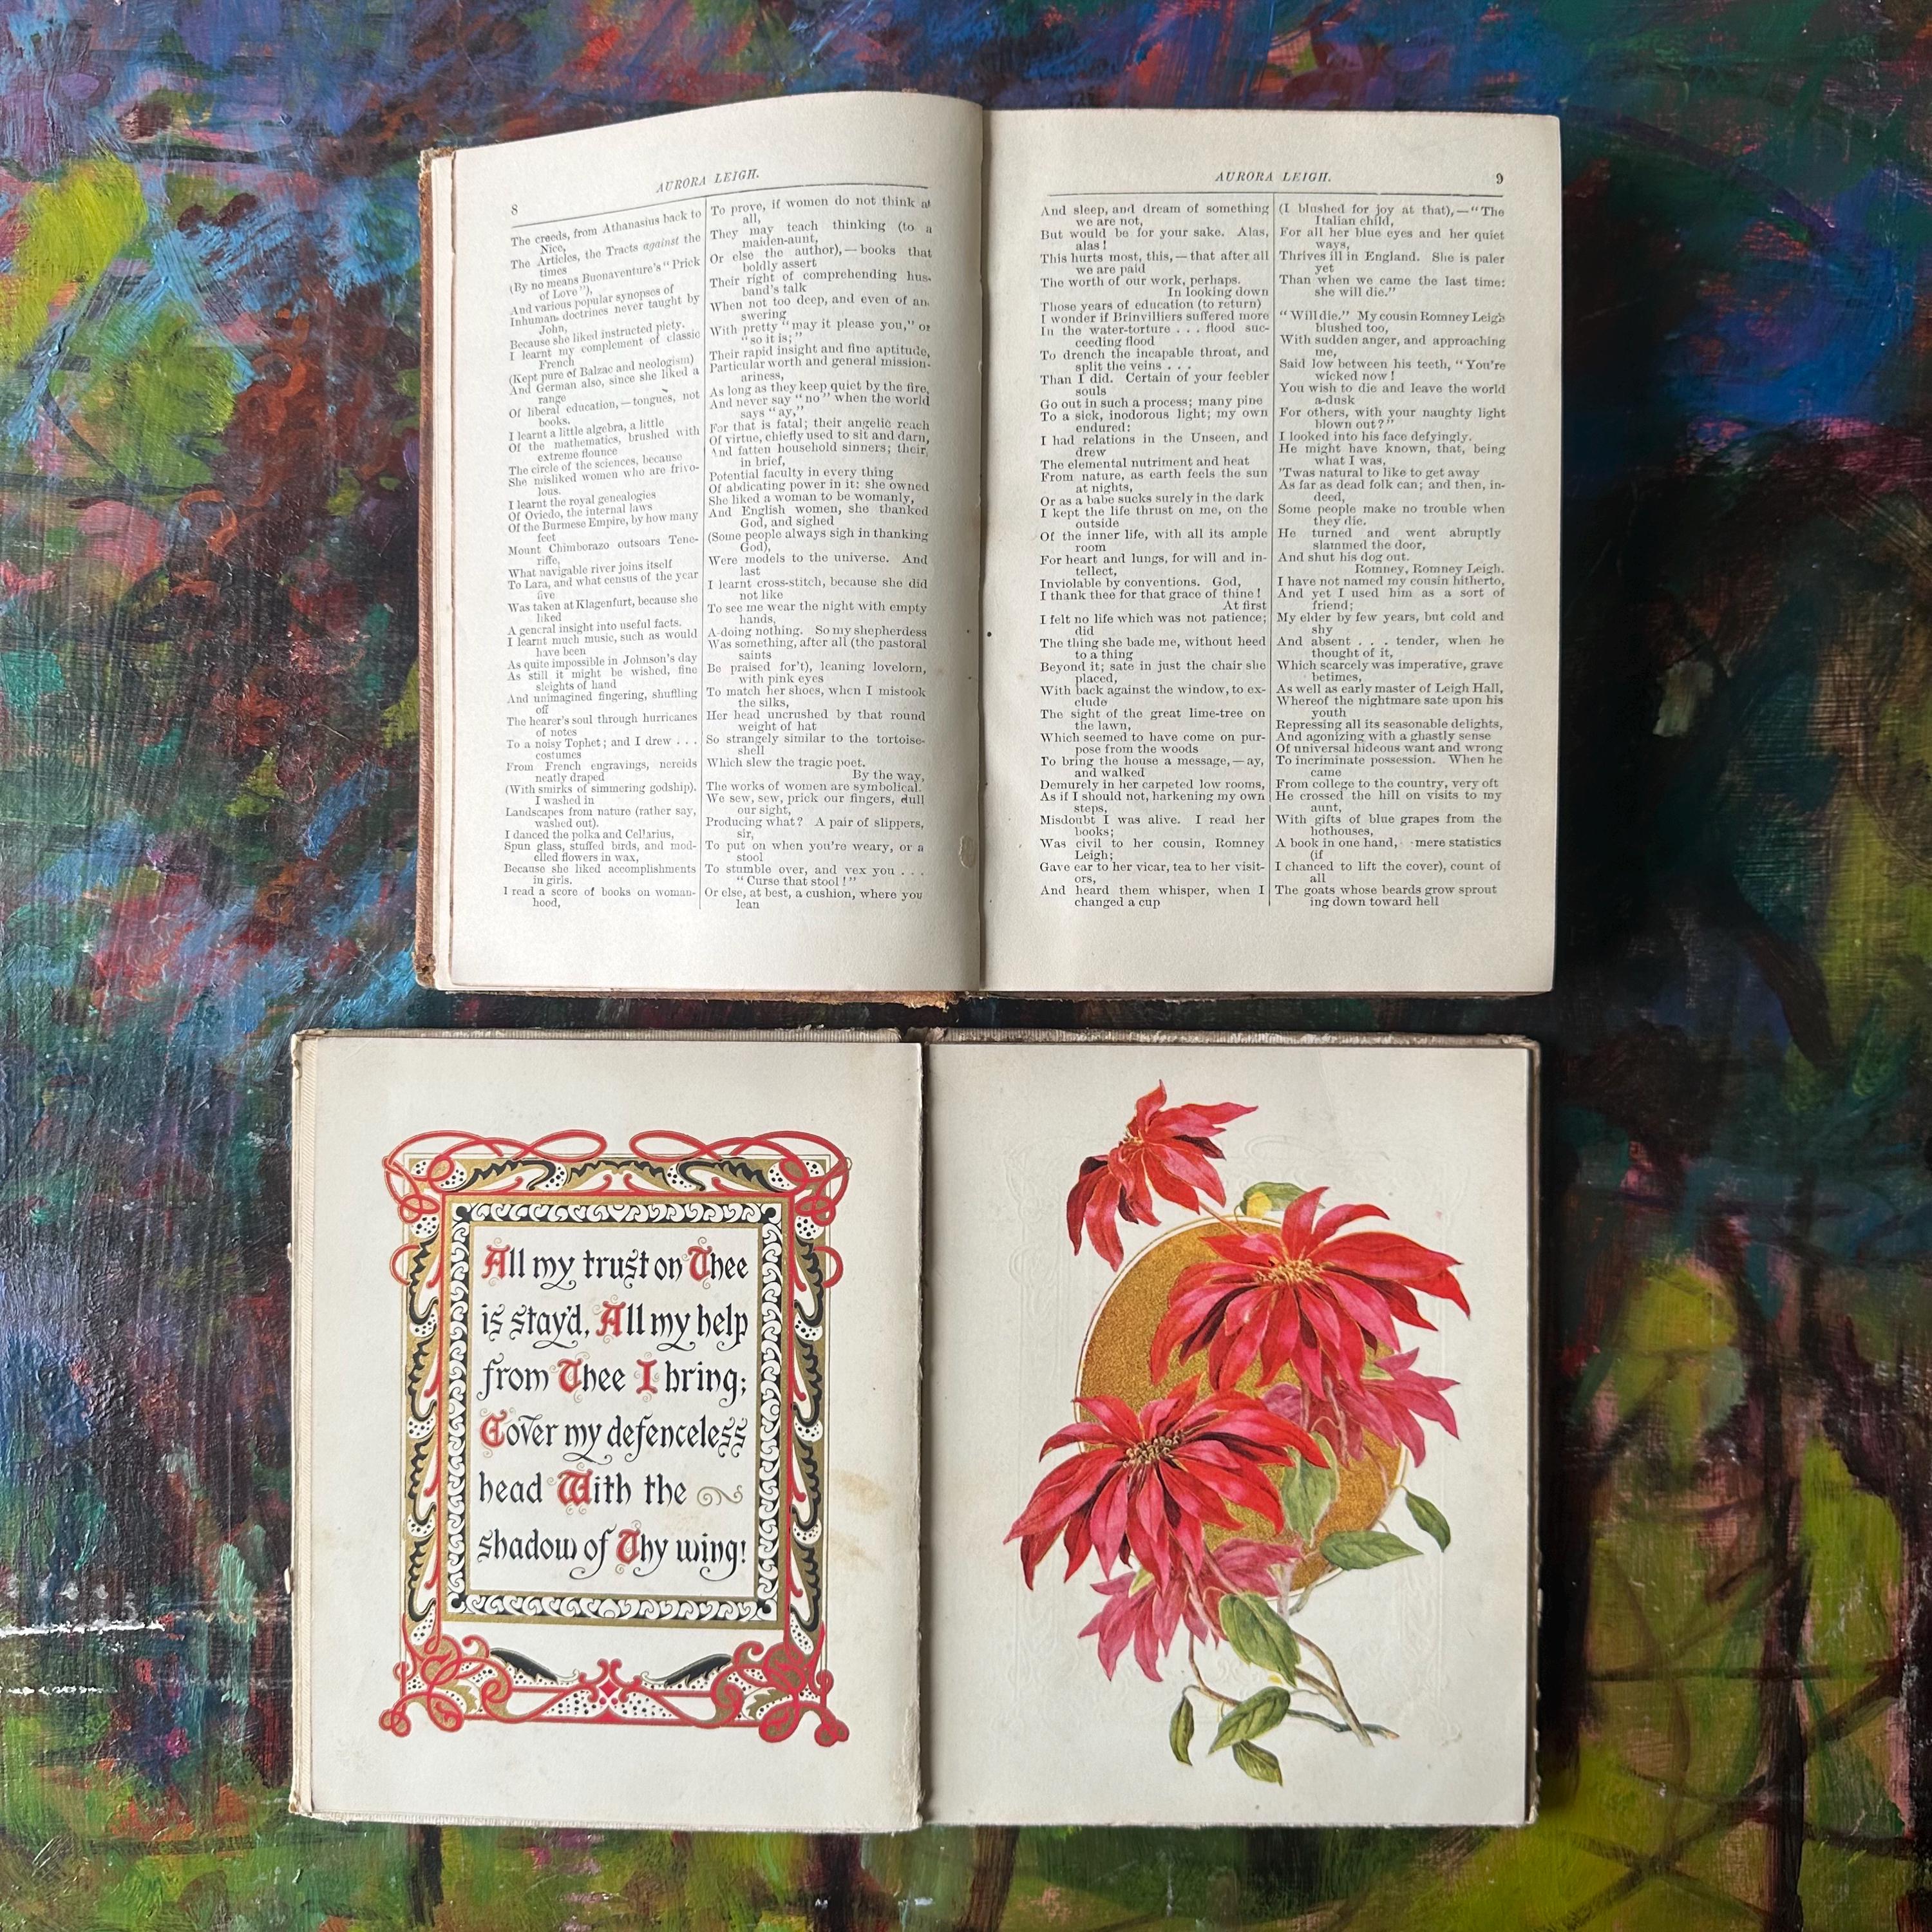 8
AURORA LEIGH.
The creeds, from Athanasius back to
Nice,
The Articles, the Tracts against the
times
(By no means Buonaventure's "Prick
of Love"),
And various popular synopses of
Inhuman doctrines never taught by
John,
Because she liked instructed piety.
I learnt my complement of classic
French
(Kept pure of Balzac and neologism)
And German also, since she liked a
range
Of liberal education,—tongues, not
books.
I learnt a little algebra, a little
Of the mathematics, brushed with
extreme flounce
The circle of the sciences, because
She misliked women who are frivo-
lous.
I learnt the royal genealogies
Of Oviedo, the internal laws
Of the Burmese Empire, by how many
feet
Mount Chimborazo outsoars Tene-
riffe,
What navigable river joins itself
To Lara, and what census of the year
five
Was taken at Klagenfurt, because she
liked
A general insight into useful facts.
I learnt much music, such as would
have been
As quite impossible in Johnson's day
As still it might be wished, fine
sleights of hand
And unimagined fingering, shuffling
off
The hearer's soul through hurricanes
of notes
To a noisy Tophet; and I drew . . .
costumes
From French engravings, nereids
neatly draped
(With smirks of simmering godship).
I washed in
Landscapes from nature (rather say,
washed out).
I danced the polka and Cellarius,
Spun glass, stuffed birds, and mod-
elled flowers in wax,
Because she liked accomplishments
in girls.
I read a score of books on woman-
hood,
To prove, if women do not think at
all,
They may teach thinking (to a
maiden-aunt,
Or else the author),—books that
boldly assert
Their right of comprehending hus-
band's talk
When not too deep, and even of an-
swering
With pretty "may it please you," or
"so it is;"
Their rapid insight and fine aptitude,
Particular worth and general mission-
ariness,
As long as they keep quiet by the fire,
And never say "no" when the world
says "ay,"
For that is fatal; their angelic reach
Of virtue, chiefly used to sit and darn,
And fatten household sinners; their,
in brief,
Potential faculty in every thing
Of abdicating power in it: she owned
She liked a woman to be womanly,
And English women, she thanked
God, and sighed
(Some people always sigh in thanking
God),
Were models to the universe. And
last
I learnt cross-stitch, because she did
not like
To see me wear the night with empty
hands,
A-doing nothing. So my shepherdess
Was something, after all (the pastoral
saints
Be praised for't), leaning lovelorn,
with pink eyes
To match her shoes, when I mistook
the silks,
Her head uncrushed by that round
weight of hat
So strangely similar to the tortoise-
shell
Which slew the tragic poet.
By the way,
The works of women are symbolical.
We sew, sew, prick our fingers, dull
our sight,
Producing what? A pair of slippers,
sir,
To put on when you're weary, or a
stool
To stumble over, and vex you . . .
"Curse that stool!"
Or else, at best, a cushion, where you
lean
AURORA LEIGH.
9
And sleep, and dream of something
we are not,
But would be for your sake. Alas,
alas!
This hurts most, this,—that after all
we are paid
The worth of our work, perhaps.
In looking down
Those years of education (to return)
I wonder if Brinvilliers suffered more
In the water-torture . . . flood suc-
ceeding flood
To drench the incapable throat, and
split the veins . . .
Than I did. Certain of your feebler
souls
Go out in such a process; many pine
To a sick, inodorous light; my own
endured:
I had relations in the Unseen, and
drew
The elemental nutriment and heat
From nature, as earth feels the sun
at nights,
Or as a babe sucks surely in the dark
I kept the life thrust on me, on the
outside
Of the inner life, with all its ample
room
For heart and lungs, for will and in-
tellect,
Inviolable by conventions. God,
I thank thee for that grace of thine!
At first
I felt no life which was not patience;
did
The thing she bade me, without heed
to a thing
Beyond it; sate in just the chair she
placed,
With back against the window, to ex-
clude
The sight of the great lime-tree on
the lawn,
Which seemed to have come on pur-
pose from the woods
To bring the house a message,—ay,
and walked
Demurely in her carpeted low rooms,
As if I should not, harkening my own
steps,
Misdoubt I was alive. I read her
books;
Was civil to her cousin, Romney
Leigh;
Gave ear to her vicar, tea to her visit-
ors,
And heard them whisper, when I
changed a cup
(I blushed for joy at that),—"The
Italian child,
For all her blue eyes and her quiet
ways,
Thrives ill in England. She is paler
yet
Than when we came the last time:
she will die."
"Will die." My cousin Romney Leigh
blushed too,
With sudden anger, and approaching
me,
Said low between his teeth, "You're
wicked now!
You wish to die and leave the world
a-dusk
For others, with your naughty light
blown out?"
I looked into his face defyingly.
He might have known, that, being
what I was,
'Twas natural to like to get away
As far as dead folk can; and then, in-
deed,
Some people make no trouble when
they die.
He turned and went abruptly
slammed the door,
And shut his dog out.
Romney, Romney Leigh.
I have not named my cousin hitherto,
And yet I used him as a sort of
friend;
My elder by few years, but cold and
shy
And absent . . . tender, when he
thought of it,
Which scarcely was imperative, grave
betimes,
As well as early master of Leigh Hall,
Whereof the nightmare sate upon his
youth
Repressing all its seasonable delights,
And agonizing with a ghastly sense
Of universal hideous want and wrong
To incriminate possession. When he
came
From college to the country, very oft
He crossed the hill on visits to my
aunt,
With gifts of blue grapes from the
hothouses,
A book in one hand, mere statistics
(if
I chanced to lift the cover), count of
all
The goats whose beards grow sprout
ing down toward hell
All my trust on Thee
is stay'd, All my help
from Thee I bring;
Cover my defenceless
head With the
shadow of Thy wing!